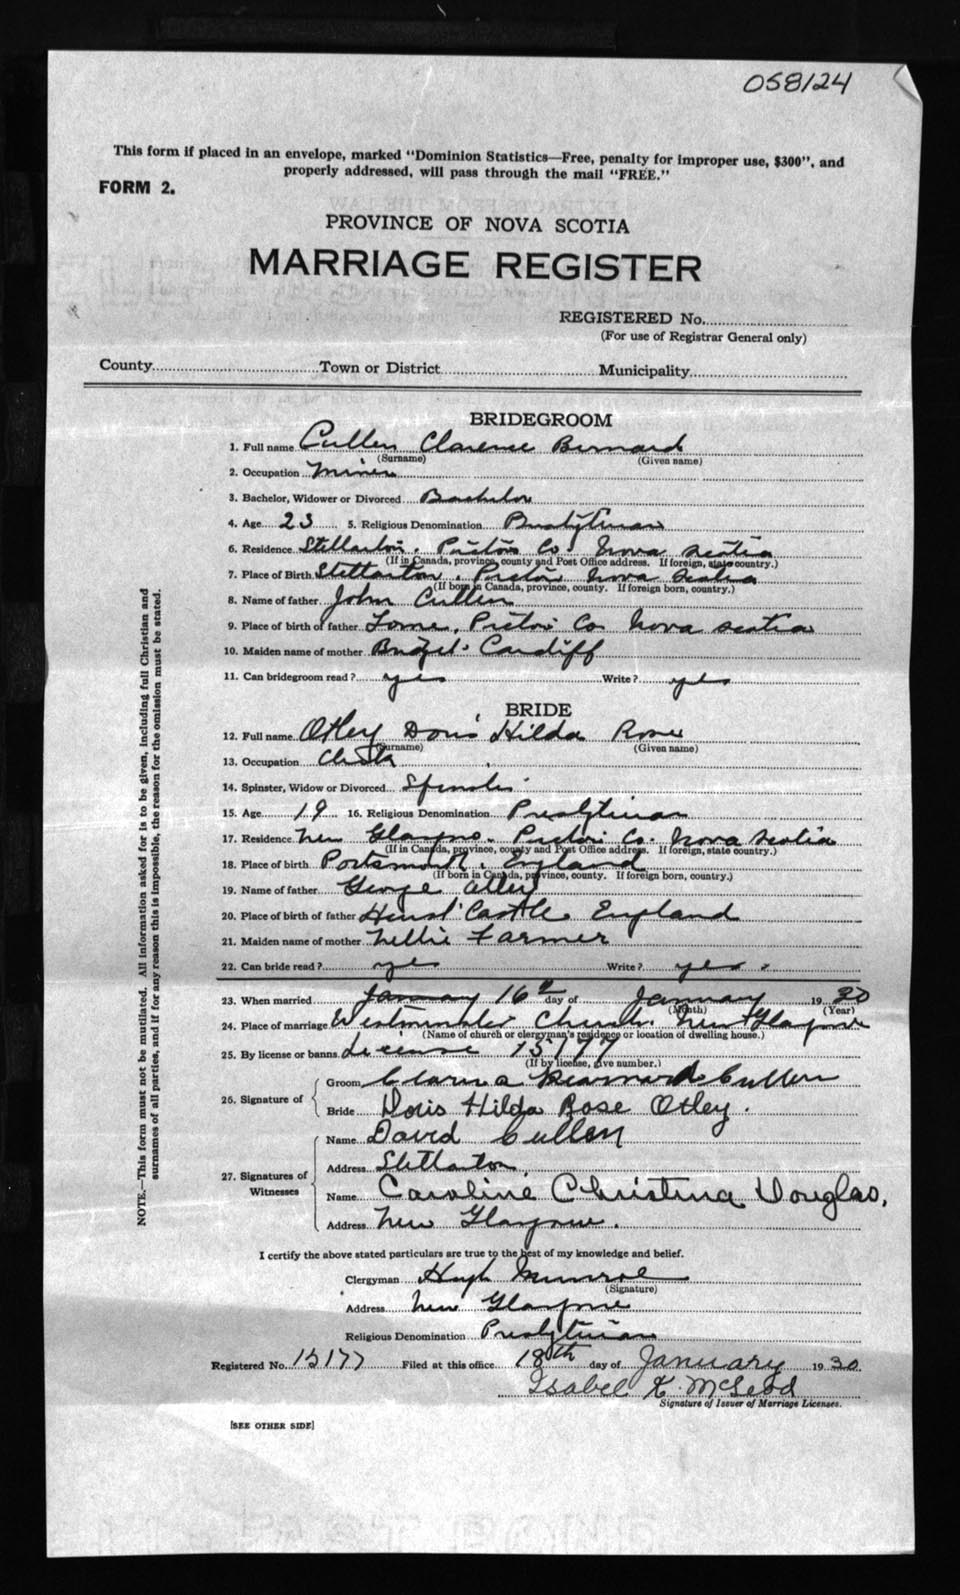 058124
This form if placed in an envelope, marked "Dominion Statistics—Free, penalty for improper use, $300", and
properly addressed, will pass through the mail "FREE."
FORM 2.
PROVINCE OF NOVA SCOTIA
MARRIAGE REGISTER
REGISTERED No.
(For use of Registrar General only)
County Town or District Municipality
BRIDEGROOM
1. Full name Cullen Clarence Bernard
(Surname) (Given name)
2. Occupation Miner
3. Bachelor, Widower or Divorced Bachelor
4. Age 23 5. Religious Denomination Presbyterian
6. Residence Stellarton, Pictou Co. Nova Scotia
(If in Canada, province, county and Post Office address. If foreign, state country.)
7. Place of Birth Stellarton, Pictou Nova Scotia
(If born in Canada, province, county. If foreign born, country.)
8. Name of father John Cullen
9. Place of birth of father Lorne, Pictou Co Nova Scotia
10. Maiden name of mother Cardiff
11. Can bridegroom read? yes Write? yes
BRIDE
12. Full name Otley Doris Hilda Rose
(Surname) (Given name)
13. Occupation Clerk
14. Spinster, Widow or Divorced Spinster
15. Age 19 16. Religious Denomination Presbyterian
17. Residence New Glasgow. Pictou Co. Nova Scotia
(If in Canada, province, county and Post Office address. If foreign, state country.)
18. Place of birth Portsmouth, England
(If born in Canada, province, county. If foreign born, country.)
19. Name of father George Otley
20. Place of birth of father Hurst Castle England
21. Maiden name of mother Nellie Farmer
22. Can bride read? yes Write? yes.
23. When married January 16th day of January 1930
(Month) (Year)
24. Place of marriage Westminster Church. New Glasgow
(Name of church or clergyman's residence or location of dwelling house.)
25. By license or banns License 15177
(If by license, give number.)
26. Signature of
Groom Clarence Bearnard Cullen
Bride Doris Hilda Rose Otley.
27. Signatures of Witnesses
Name David Cullen
Address Stellarton
Name Caroline Christina Douglas,
Address New Glasgow.
I certify the above stated particulars are true to the best of my knowledge and belief.
Clergyman Hugh Munroe
(Signature)
Address New Glasgow
Religious Denomination Presbyterian
Registered No. 15177 Filed at this office 18th day of January 1930
Isabel K. McLeod
Signature of Issuer of Marriage Licenses.
[SEE OTHER SIDE]
NOTE.—This form must not be mutilated. All information asked for is to be given, including full Christian and
surnames of all parties, and if for any reason this is impossible, the reason for the omission must be stated.